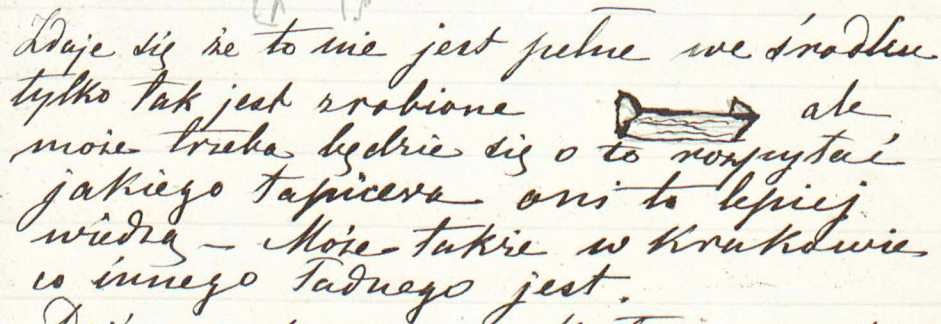 Zdaje się że to nie jest pełne we środku
tylko tak jest zrobione ale
może trzeba będzie się o to rozpytać
jakiego tapicera oni to lepiej
wiedzą – Może także w Krakowie
co innego ładnego jest.